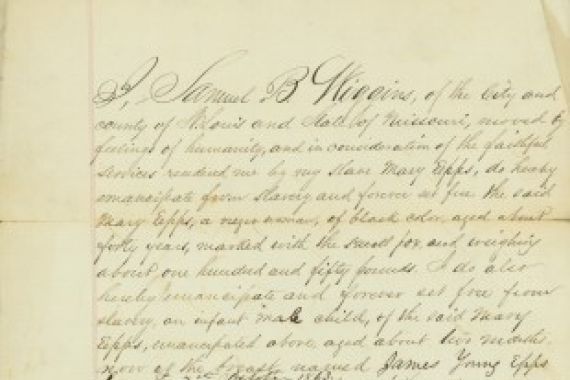 I, Samuel B Wiggins, of the City and
county of St. Louis and State of Missouri, moved by
feelings of humanity, and in consideration of the faithful
services rendered me by my slave Mary Epps, do hereby
emancipate from slavery and forever set free the said
Mary Epps, a negro woman, of black color, aged about
forty years, marked with the small pox, and weighing
about one hundred and fifty pounds. I do also
hereby emancipate and forever set free from
slavery, an infant male child, of the said Mary
Epps, emancipated above, aged about two months
now at the breast, named James Young Epps
October